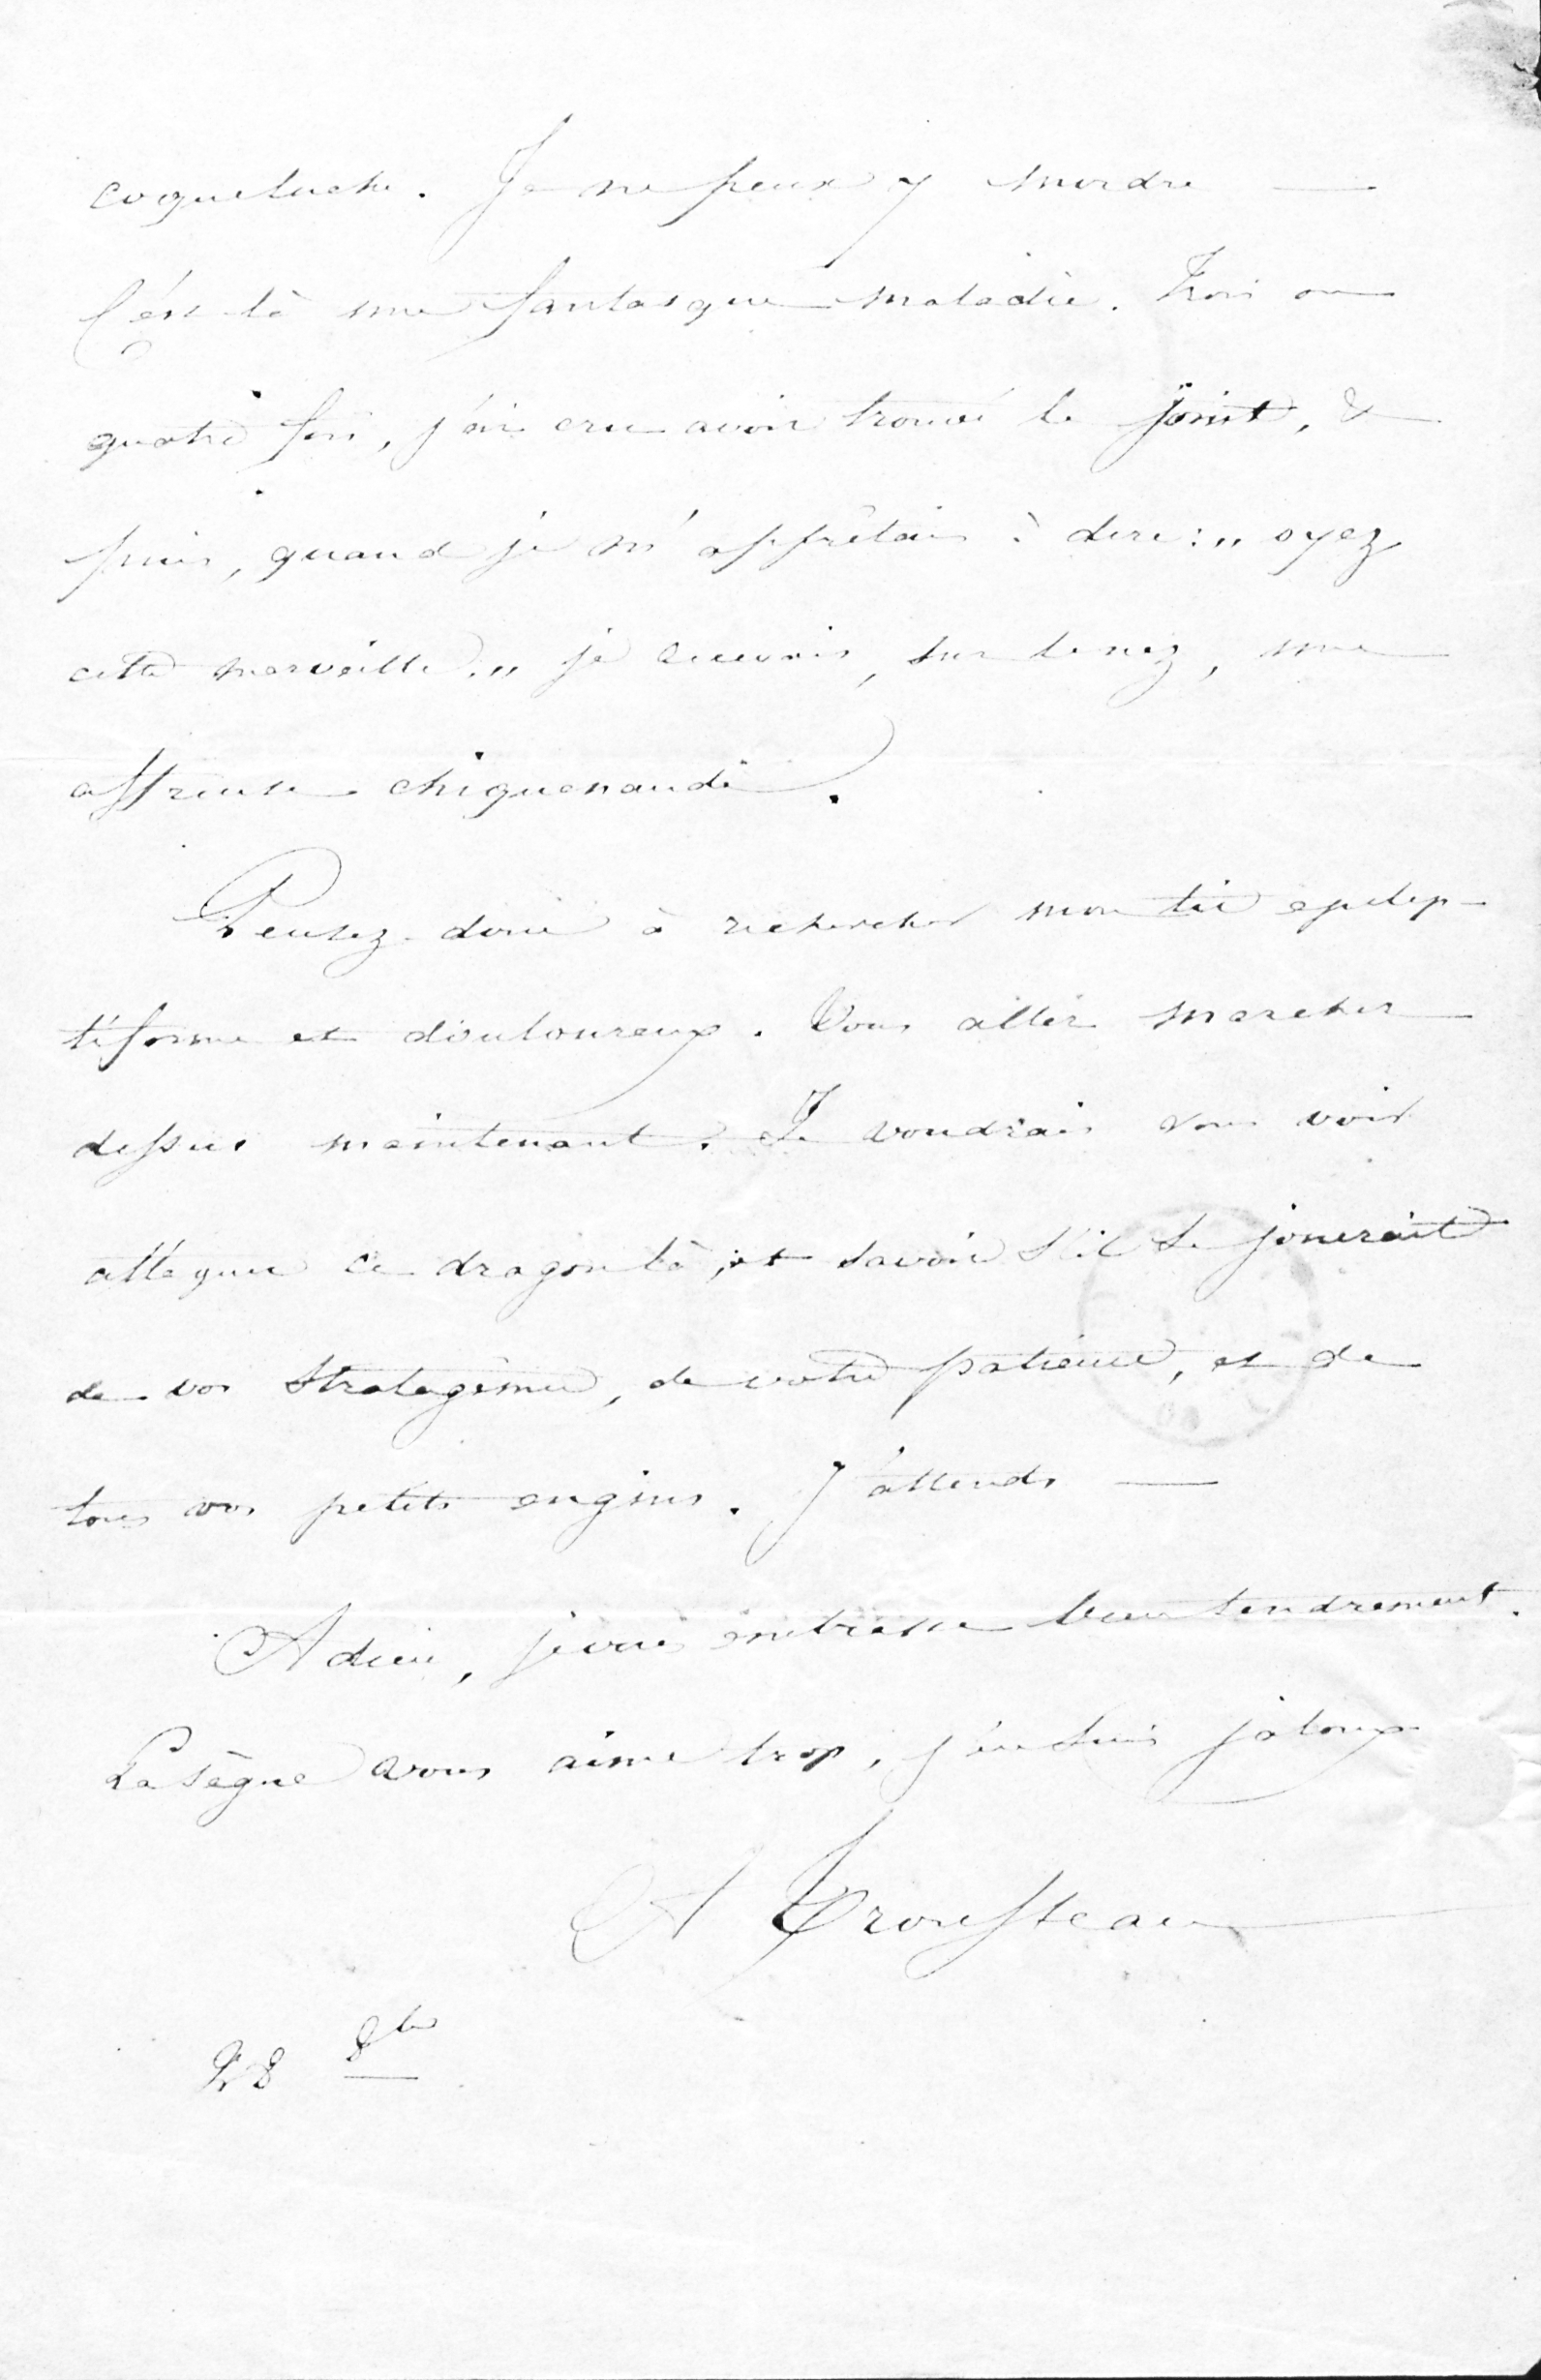 coqueluche. Je ne peux y mordre —
C'est là une fantasque maladie. Trois ou
quatre fois, j'ai cru avoir trouvé le joint, &
puis, quand je m'apprêtais à dire : „ oyez
cette merveille „ je recevais, sur le nez, une
affreuse chiquenaude.
Pensez donc à rechercher mon tic epilep-
tiforme et douloureux. Vous allez marcher
dessus maintenant. Je voudrais vous voir
attaquer ce dragon là, et savoir s'il se jouerait
de vos stratagèmes, de votre patience, et de
tous vos petits engins. J'attends —
Adieu, je vous embrasse bien tendrement.
Lasègue vous aime trop, j'en suis jaloux
A Trousseau
28 8bre